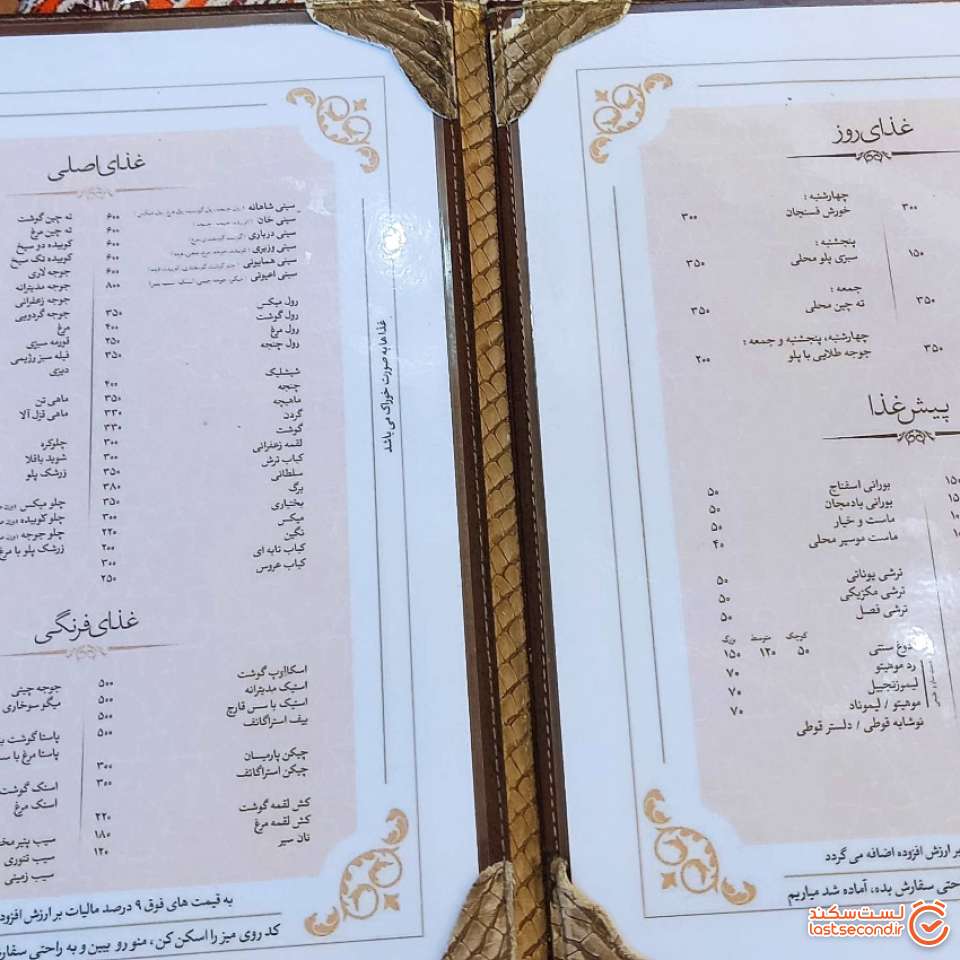 غذای روز
چهارشنبه :
خورش فسنجان ۳۰۰
۳۰۰
پنجشنبه :
سبزی پلو محلی ۳۵۰
۱۵۰
جمعه :
ته چین محلی ۳۵۰
۳۵۰
چهارشنبه، پنجشنبه و جمعه :
جوجه طلایی با پلو ۲۰۰
۳۵۰
پیش غذا
بورانی اسفناج ۵۰
بورانی بادمجان ۵۰
ماست و خیار ۵۰
ماست موسیر محلی ۴۰
ترشی یونانی ۵۰
ترشی مکزیکی ۵۰
ترشی فصل ۵۰
کوچک متوسط بزرگ
دوغ سنتی ۵۰ ۱۲۰ ۱۵۰
رد موهیتو ۷۰
لیموزنجبیل ۷۰
موهیتو / لیموناد ۷۰
نوشابه قوطی / دلستر قوطی
بر ارزش افزوده اضافه می گردد
سفارش بده، آماده شد میاریم
غذای اصلی
سینی شاهانه ۶۰۰
سینی خان ۶۰۰
سینی درباری ۶۰۰
سینی وزیری ۶۰۰
سینی همایونی ۶۰۰
سینی اعیونی ۸۰۰
رول میکس ۳۵۰
رول گوشت ۴۰۰
رول مرغ ۲۵۰
رول چنجه ۳۵۰
شیشلیک ۴۰۰
چنجه ۳۵۰
ماهیچه ۳۳۰
گردن ۳۳۰
گوشت ۳۰۰
لقمه زعفرانی ۳۰۰
کباب ترش ۳۵۰
سلطانی ۳۸۰
برگ ۳۵۰
بختیاری ۳۰۰
میکس ۲۲۰
نگین ۲۰۰
کباب تابه ای ۳۰۰
کباب عروس ۲۵۰
ته چین گوشت
ته چین مرغ
کوبیده دو سیخ
کوبیده تک سیخ
جوجه لاری
جوجه مدیترانه
جوجه زعفرانی
جوجه گردویی
مرغ
قورمه سبزی
فیله سبز رژیمی
دیزی
ماهی تن
ماهی قزل آلا
چلوکره
شوید باقلا
زرشک پلو
چلو میکس
چلو کوبیده
چلو جوجه
زرشک پلو با مرغ
غذاها به صورت خوراک می باشد
غذای فرنگی
اسکالوپ گوشت ۵۰۰
استیک مدیترانه ۵۰۰
استیک با سس قارچ ۵۰۰
بیف استراگانف ۵۰۰
چیکن پارمیسان ۳۰۰
چیکن استراگانف ۳۰۰
کش لقمه گوشت ۲۲۰
کش لقمه مرغ ۱۸۰
نان سیر ۱۲۰
جوجه چینی
میگو سوخاری
پاستا گوشت
پاستا مرغ با
اسنک گوشت
اسنک مرغ
سیب پنیر
سیب تنوری
سیب زمینی
به قیمت های فوق ۹ درصد مالیات بر ارزش افزود
کد روی میز را اسکن کن، منو رو ببین و به راحتی
لست‌سکند
lastsecond.ir